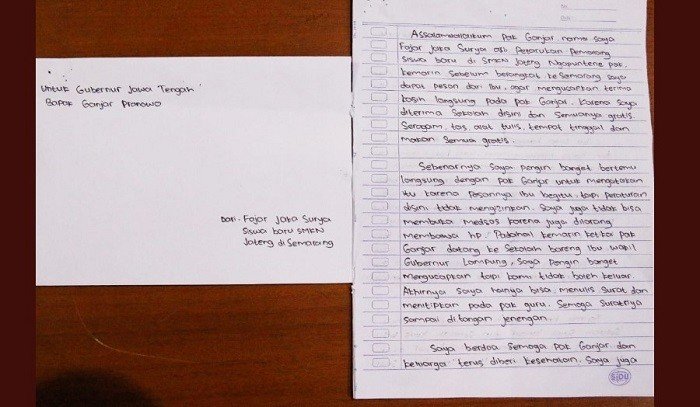 Untuk Gubernur Jawa Tengah
Bapak Ganjar Pranowo
Dari : Fajar Jaka Surya
Siswa baru SMKN
Jateng di Semarang
No.
Date
Assalamualaikum pak Ganjar nama saya
Fajar Jaka Surya asli Petarukan Pemalang
siswa baru di SMKN Jateng Ngapuntene pak,
kemarin sebelum berangkat ke Semarang saya
dapat pesan dari Ibu, agar mengucapkan terima
kasih langsung pada pak Ganjar. Karena saya
diterima Sekolah disini dan semuanya gratis.
Seragam, tas, alat tulis, tempat tinggal dan
makan semua gratis.
Sebenarnya saya pengin banget bertemu
langsung dengan pak Ganjar untuk mengatakan
itu karena pesannya Ibu begitu. tapi peraturan
disini tidak mengizinkan. Saya juga tidak bisa
membuka medsos karena juga dilarang
membawa hp. Padahal kemarin ketika pak
Ganjar datang ke Sekolah bareng Ibu wakil
Gubernur Lampung, saya pengin banget
mengucapkan tapi kami tidak boleh keluar.
Akhirnya saya hanya bisa menulis surat dan
menitipkan pada pak guru. Semoga suratnya
sampai di tangan jenengan.
Saya berdoa semoga pak Ganjar dan
keluarga terus diberi kesehatan. Saya juga
SiDU